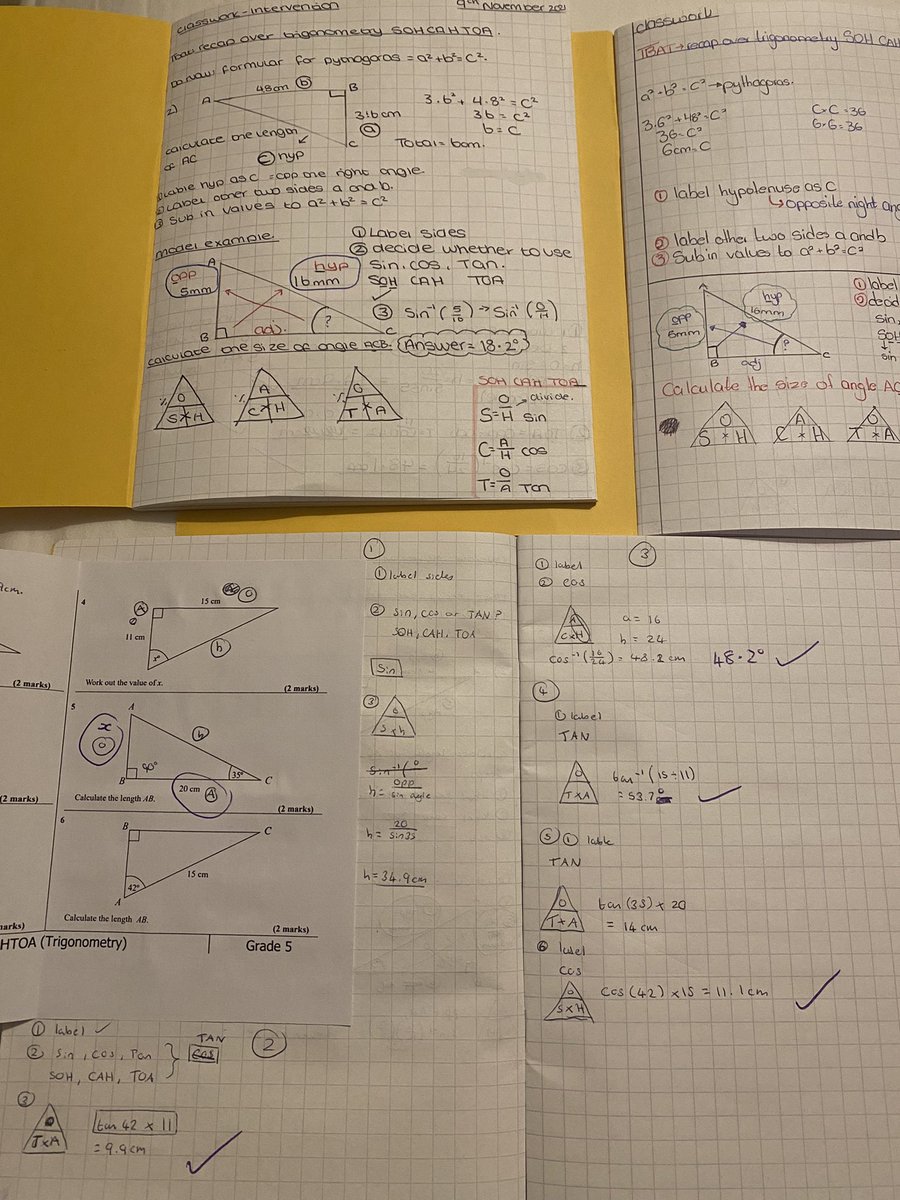 classwork - Intervention
9th November 2021
TBAT: recap over trigonometry SOHCAHTOA.
DO NOW: formular for pythagoras = a²+b²=c².
2)
A
48cm
b
B
3.6cm
a
C
c hyp
calculate the length
of AC
3.6² + 4.8² = C²
36 = C²
6 = C
Total = 6cm.
① Lable hyp as C = opp the right angle.
② Label other two sides a and b.
③ Sub in values to a² + b² = c²
model example.
A
opp
5mm
hyp
16mm
B
adj.
?
C
① Label sides
② decide whether to use
Sin, cos, Tan.
SOH CAH TOA
③ Sin⁻¹ (5/16) → Sin⁻¹ (O/H)
calculate the size of angle ACB.
Answer = 18.2°
O
S × H
A
C × H
O
T × A
SOH CAH TOA
S = O/H Sin
divide.
C = A/H cos
T = O/A Tan
classwork
TBAT → recap over trigonometry SOH CAH
a² + b² = c² → pythagoras.
3.6² + 48² = C²
36 = C²
6cm = C
C × C = 36
6 × 6 = 36
① label hypotenuse as C
↳ opposite right an
② label other two sides a and b
③ Sub in values to a² + b² = c²
opp
5mm
hyp
16mm
B
adj
?
C
① label
② decid
sin,
SOH
sin
Calculate the size of angle AC
O
S × H
A
C × H
O
T × A
9cm.
(2 marks)
(2 marks)
marks)
4
15 cm
A
O
11 cm
x°
h
Work out the value of x.
(2 marks)
5
A
x
O
h
90°
B
35°
C
20 cm
A
Calculate the length AB.
(2 marks)
6
B
C
42°
15 cm
A
Calculate the length AB.
(2 marks)
HTOA (Trigonometry)
Grade 5
①
① label sides
② sin, cos or TAN?
SOH, CAH, TOA
Sin
③
O
S × h
sin⁻¹ (O
h = opp/sin angle
h = 20/sin35
h = 34.9cm
① label ✓
② Sin, cos, Tan
SOH, CAH, TOA
TAN
cos
②
③
T × A
tan 42 × 11
= 9.9cm
③
① label
② cos
A
C × H
a = 16
h = 24
cos⁻¹ (16/24) = 48.2 cm
48.2°
④
① label
TAN
O
T × A
tan⁻¹ (15 ÷ 11)
= 53.7°
⑤ ① lable
TAN
O
T × A
tan (35) × 20
= 14cm
⑥ label
cos
O
S × H
cos (42) × 15 = 11.1cm